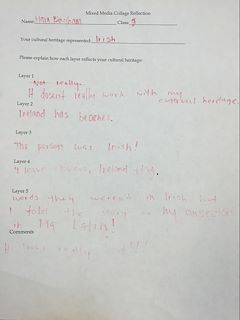 Mixed Media Collage Reflection
Name Class 7
Your cultural heritage represented: Irish
Please explain how each layer reflects your cultural heritage:
Layer 1
Not really.
It doesn't really work with my
cultural heritage.
Layer 2
Ireland has beaches.
Layer 3
The person was Irish!
Layer 4
4 leave clovers, Ireland flag.
Layer 5
words they weren't in Irish but
I told the story of my ancestors
in PIG LATIN!
Comments
It looks really